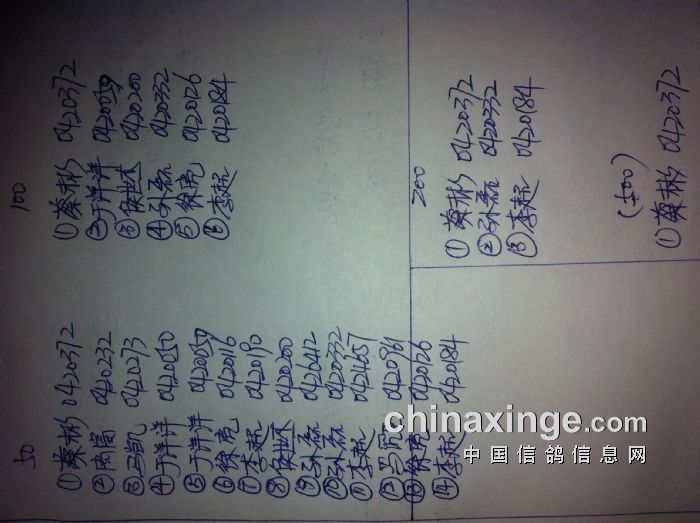 50
①蔡彬 0420372
② 0420232
③马凯 0420273
④于洋洋 0420050
⑤于洋洋 0420059
⑥徐亮 0420116
⑦李超 0420190
⑧ 0420200
⑨孙磊 0426412
⑩孙磊 0420332
⑪李超 0424657
⑫ 0420961
⑬徐亮 0420126
⑭李超 0420184
100
①蔡彬 0420372
②于洋洋 0420059
③ 0420200
④孙磊 0420332
⑤徐亮 0420126
⑥李超 0420184
200
①蔡彬 0420372
②孙磊 0420332
③李超 0420184
(500)
①蔡彬 0420372
chinaxinge.com
中国信鸽信息网